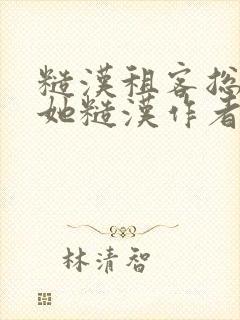 糙漢租客总
她糙漢作者
林清智